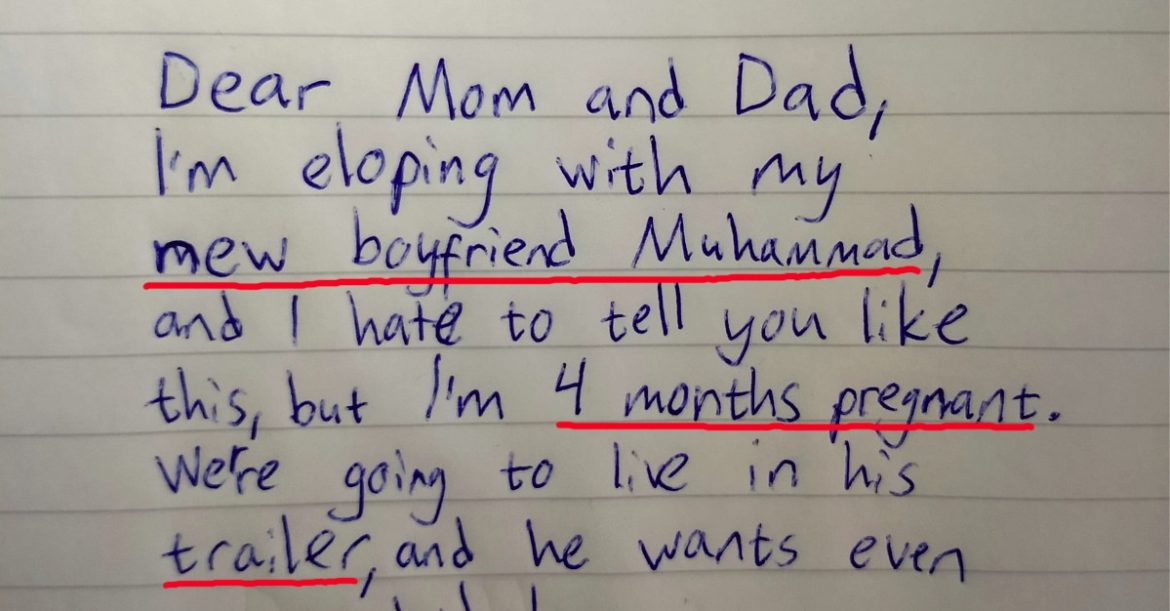 Dear Mom and Dad,
I'm eloping with my
new boyfriend Muhammad,
and I hate to tell you like
this, but I'm 4 months pregnant.
We're going to live in his
trailer, and he wants even